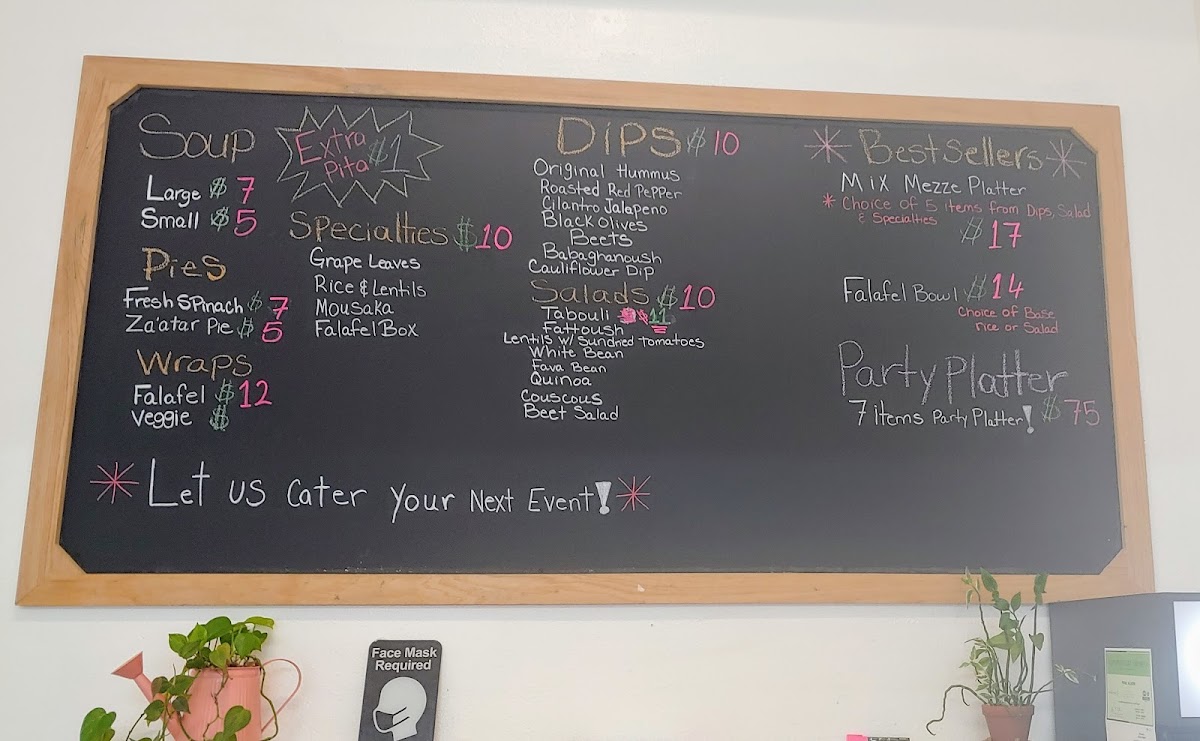 Soup
Large $ 7
Small $ 5
Pies
Fresh Spinach $ 7
Za'atar Pie $ 5
Wraps
Falafel $ 12
Veggie $
Extra
Pita $1
Specialties $10
Grape Leaves
Rice & Lentils
Mousaka
Falafel Box
Dips $ 10
Original Hummus
Roasted Red Pepper
Cilantro Jalapeno
Black Olives
Beets
Babaghanoush
Cauliflower Dip
Salads $10
Tabouli $ 11
Fattoush
Lentils w/ Sundried tomatoes
White Bean
Fava Bean
Quinoa
Couscous
Beet Salad
Best Sellers
Mix Mezze Platter
* Choice of 5 items from Dips, Salad
& Specialties
$ 17
Falafel Bowl $ 14
Choice of Base
rice or Salad
Party Platter
7 items Party Platter! $ 75
* Let us Cater Your Next Event! *
Face Mask
Required